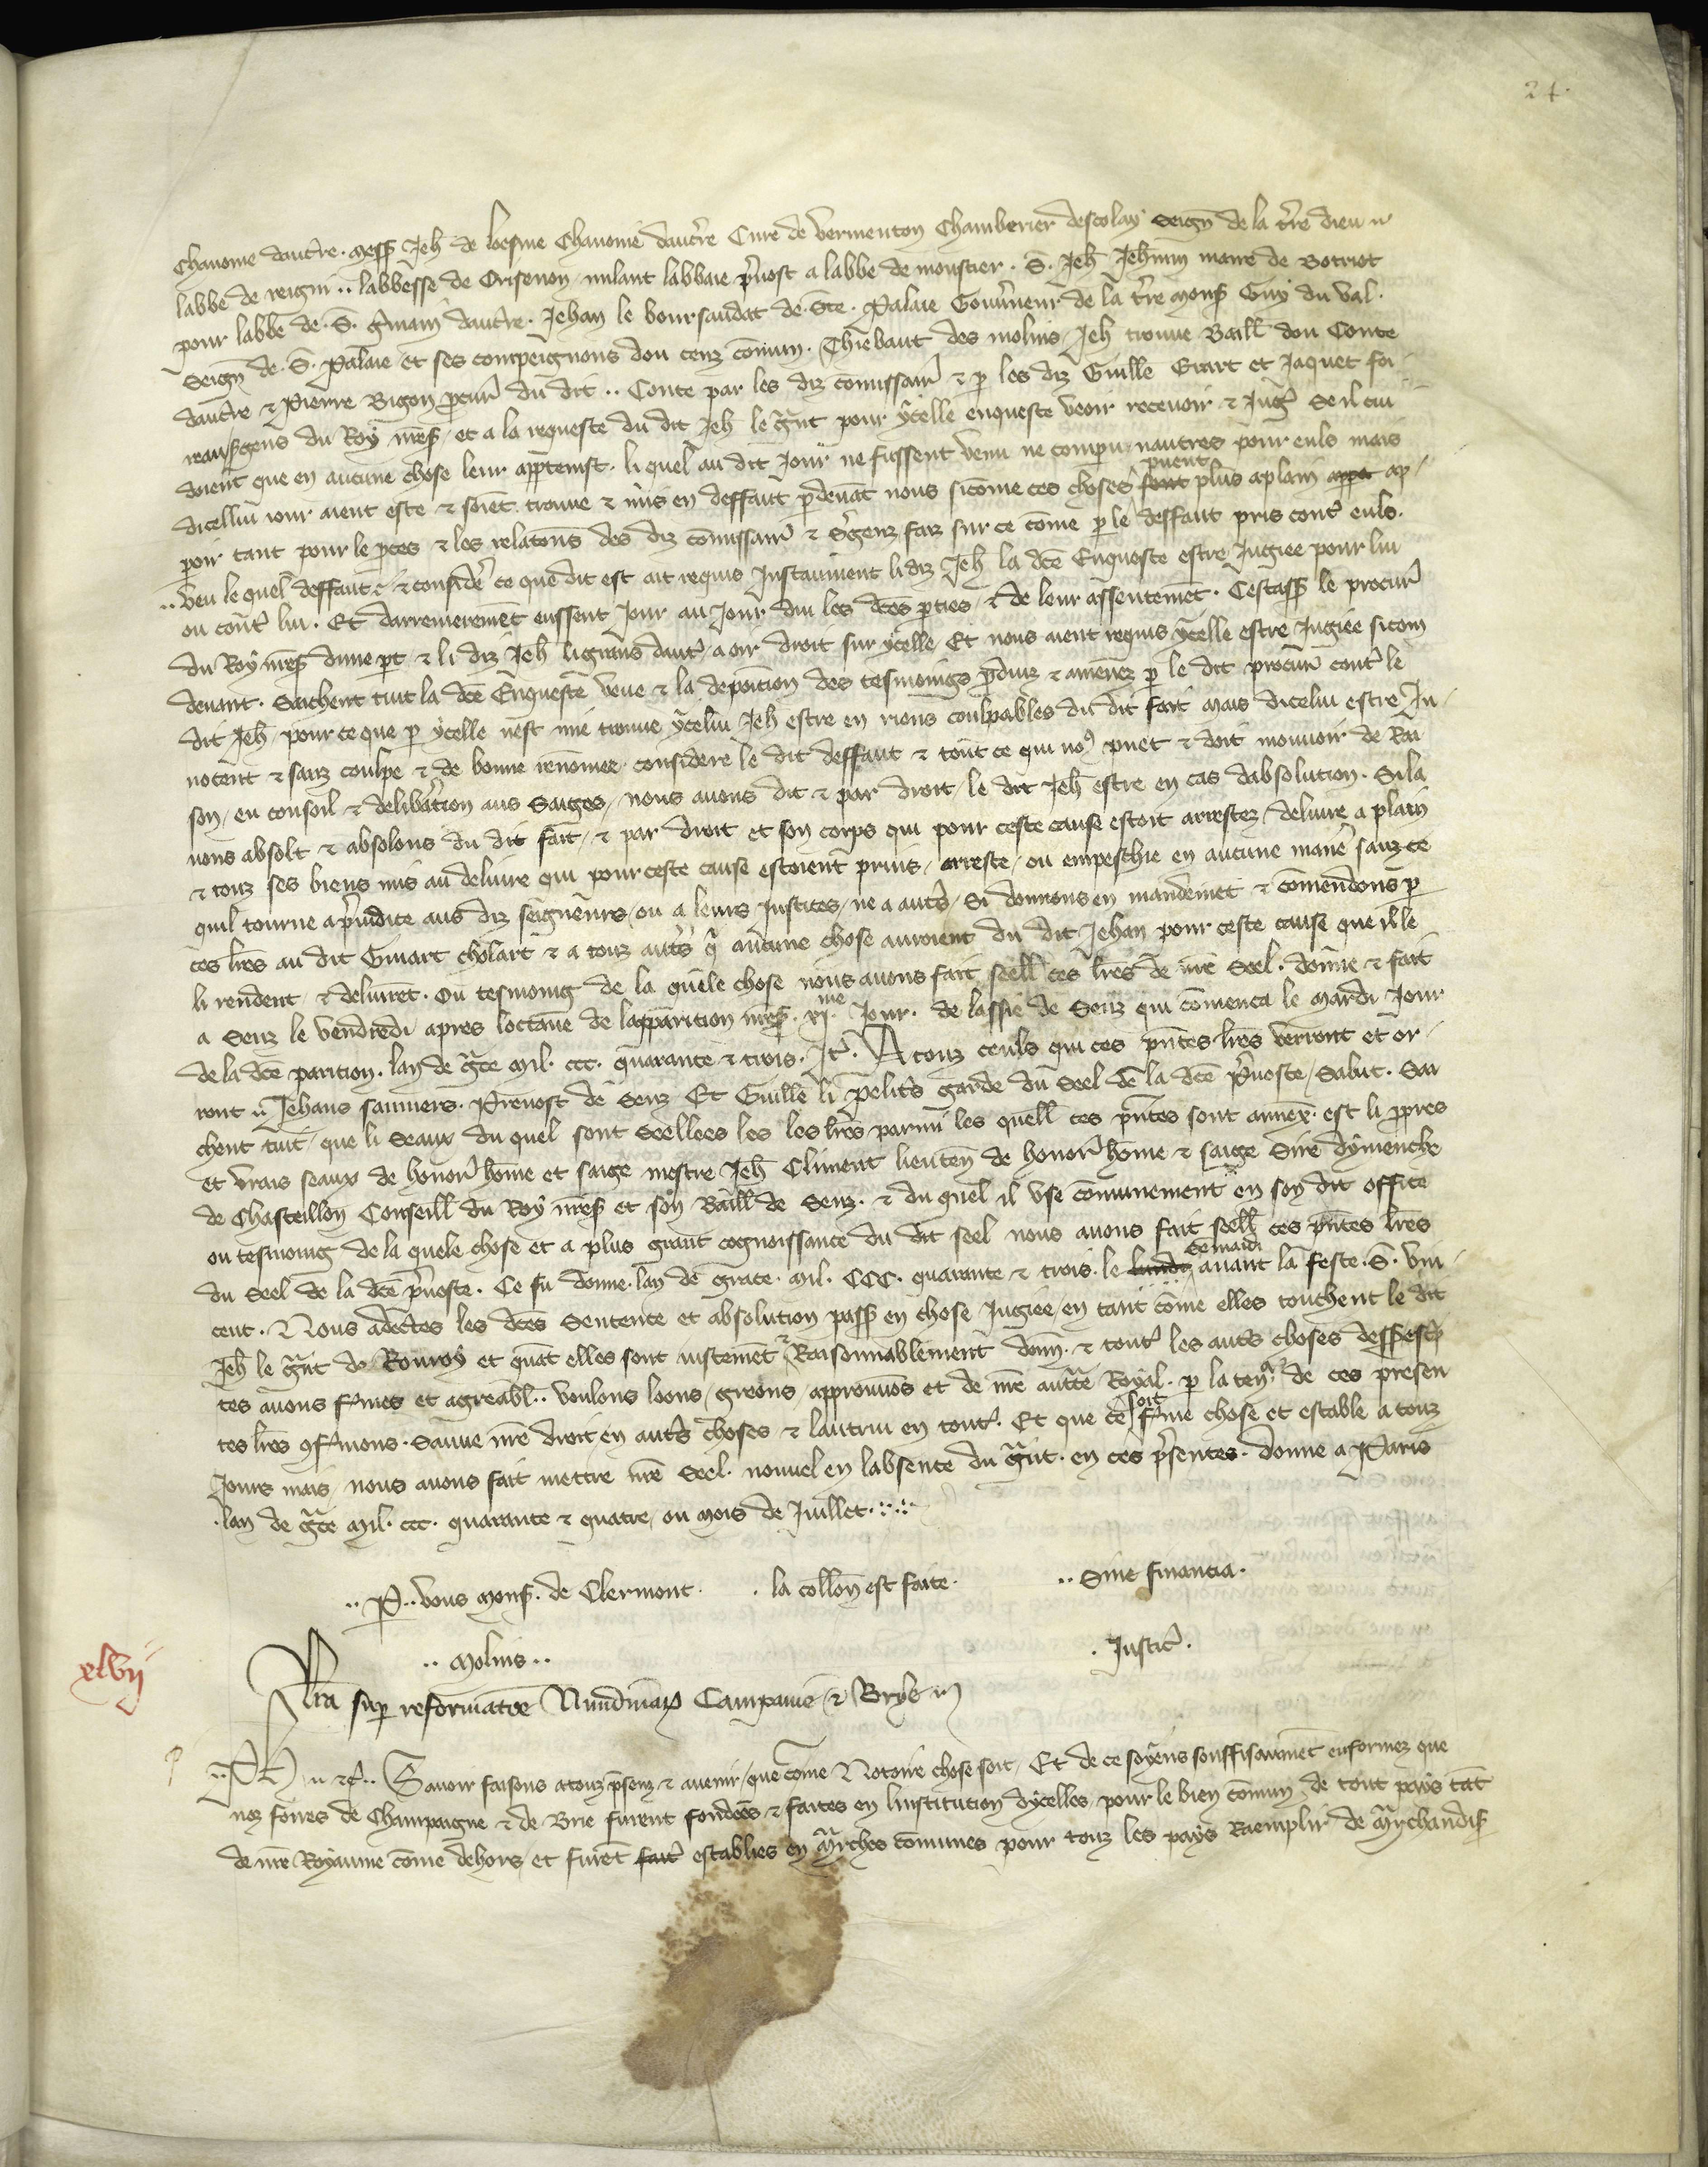 24.
Chanoine daucre. mess Jeh de loesme Chanoine daucre Cure de Vermenton Chamberier descolay Seign de la tre dieu
labbe de reigni .. labbesse de Crisenon, labbaie pvost a labbe de moustier. S. Jeh Jehnnin maire de Botriot
pour labbe de S. gmain daucre. Jehan le boursaudat de Ste. Palaie Gouvneur de la tre mons Guy du Val.
Seign de S. Palaie et ses compeignons dou cenz comun. Thiebaut des molins, Jeh trouve Baill dou Conte
daucre & Pierre Bigon pcur du dit .. Conte par les diz comissair & p les diz Guille Erart et Jaquet foi
gens du Roy nres, et a la requeste du dit Jeh le gnt pour ycelle enqueste veoir recevoir & Jugr Se il cui
doient que en aucune chose leur apptenist. li quel au dit Jour ne fussent venu ne compu, nautres pour euls mais
dicelluy iour aient este & soiet trouve & mis en deffaut pdevat nous sicome ces choses font puent plus aplain appt ap
poir tant pour le pces & les relatons des diz comissair & Sgenz faiz sur ce come p le deffaut pris contr euls.
.. Veu le quel deffaut & considr ce que dit est ait requis Instaument li diz Jeh la dce Enqueste estre Jugiee pour lui
ou contr lui. Et darrenierement eussent Jour au Jour dui les dces pties, & de leur assentemet. Cestass le procur
du Roy nres dune pt & li diz Jeh li grans dautr a oir droit sur ycelle Et nous aient requis ycelle estre Jugiee sicom
devant. Sachent tuit la dce Enqueste veue & la deposition des tesmoings pduiz & amenez p le dit procur contr le
dit Jeh, pour ce que p ycelle nest mie trouve ycelui Jeh estre en riens coulpables du dit fait mais dicelui estre In
nocent & sanz coulpe & de bonne renomee, considere le dit deffaut & tout ce qui no9 puet & doit mouvoir de Rai
son, eu conseil & delibation aus Saiges, nous avons dit & par droit, le dit Jeh estre en cas dabsolution. Si la
vons absolt & absolons du dit fait, & par droit et son corps qui pour ceste cause estoit arrestez, delivre a plain
& touz ses biens mis au delivre qui pour ceste cause estoient prins, arreste, ou empeschie en aucune manie sanz ce
quil tourne apiudice aus diz seigneurs, ou a leurs Justices, ne a autrs, Si donnons en mandemet & comendons p
ces lres au dit Guiart cholart & a touz autrs q aucune chose auroient du dit Jehan pour ceste cause que il le
li rendent, & delivret. Ou tesmoing de la quele chose nous avons fait seell ces lres de nre Seel. donne & fait
a Senz le vendredi apres loctave de lapparition nres. xj.me Jour. de lassie de Senz qui comenca le mardi Jour
de la dce parition. lan de gce mil. ccc. quarante & trois. Jt. A touz ceuls qui ces pntes lres verront et or
ront Jehans sauniers. Prevost de Senz Et Guille li pelits garde du Seel de la dce pvoste, Salut. Sai
chent tuit, que li Seaux du quel sont Seellees les les lres parmi les quell ces pntes sont annex. est li ppres
et vrais seaux de honor home et saige mestre Jeh Climent lieuten de honor home & saige Sire dymenche
de Chasteillon Conseill du Roy nres et son Baill de Senz. & du quel il use comunement en son dit office
ou tesmoing de la quele chose et a plus grant cognoissance du dit seel nous avons fait seell ces pntes lres
du Seel de la dce pvoste. Ce fu donne lan de grace. mil. CCC. quarante & trois. le lundi Semadi avant la feste. S. Vin
cent. Nous adectes les dces Sentence et absolution pass en chose Jugiee, en tant come elles touchent le dit
Jeh le gnt de Rouvoy et quat elles sont iustemet & Raisonnablement donn. & toutr les autrs choses desssescp
tes avons fmes et agreabl.. voulons loons, greons, approuvos et de nre auttte Royal. p la tenr. de ces presen
tes lres 9fmons. Sauve nre droit en autrs choses & lautrui en toutr. Et que ce soit fme chose et estable a touz
Jours mais, nous avons fait mettre nre Seel. nouvel en labsence du gnt. en ces psentes. donne a Paris
lan de gce mil. ccc. quarante & quatre, ou mois de Juillet.
.. P .. vous mons. de Clermont. . la collon est faite. .. Sine financia.
.. Molins .. . Justic.
xlvij
Lra sup reformatoe Nundinar Campanie & Brye
.. Ph & c .. Savoir faisons atouz psenz & avenir, que come Notoire chose soit, Et de ce soyens souffisaument enformez que
noz foires de Champaigne & de Brie furent fondees & faites en linstitution dycelles, pour le bien comun de tout pays tat
de nre Royaume come dehors, et furet fait establies en Mrches comunes pour touz les pays Raemplir de Mrchandis